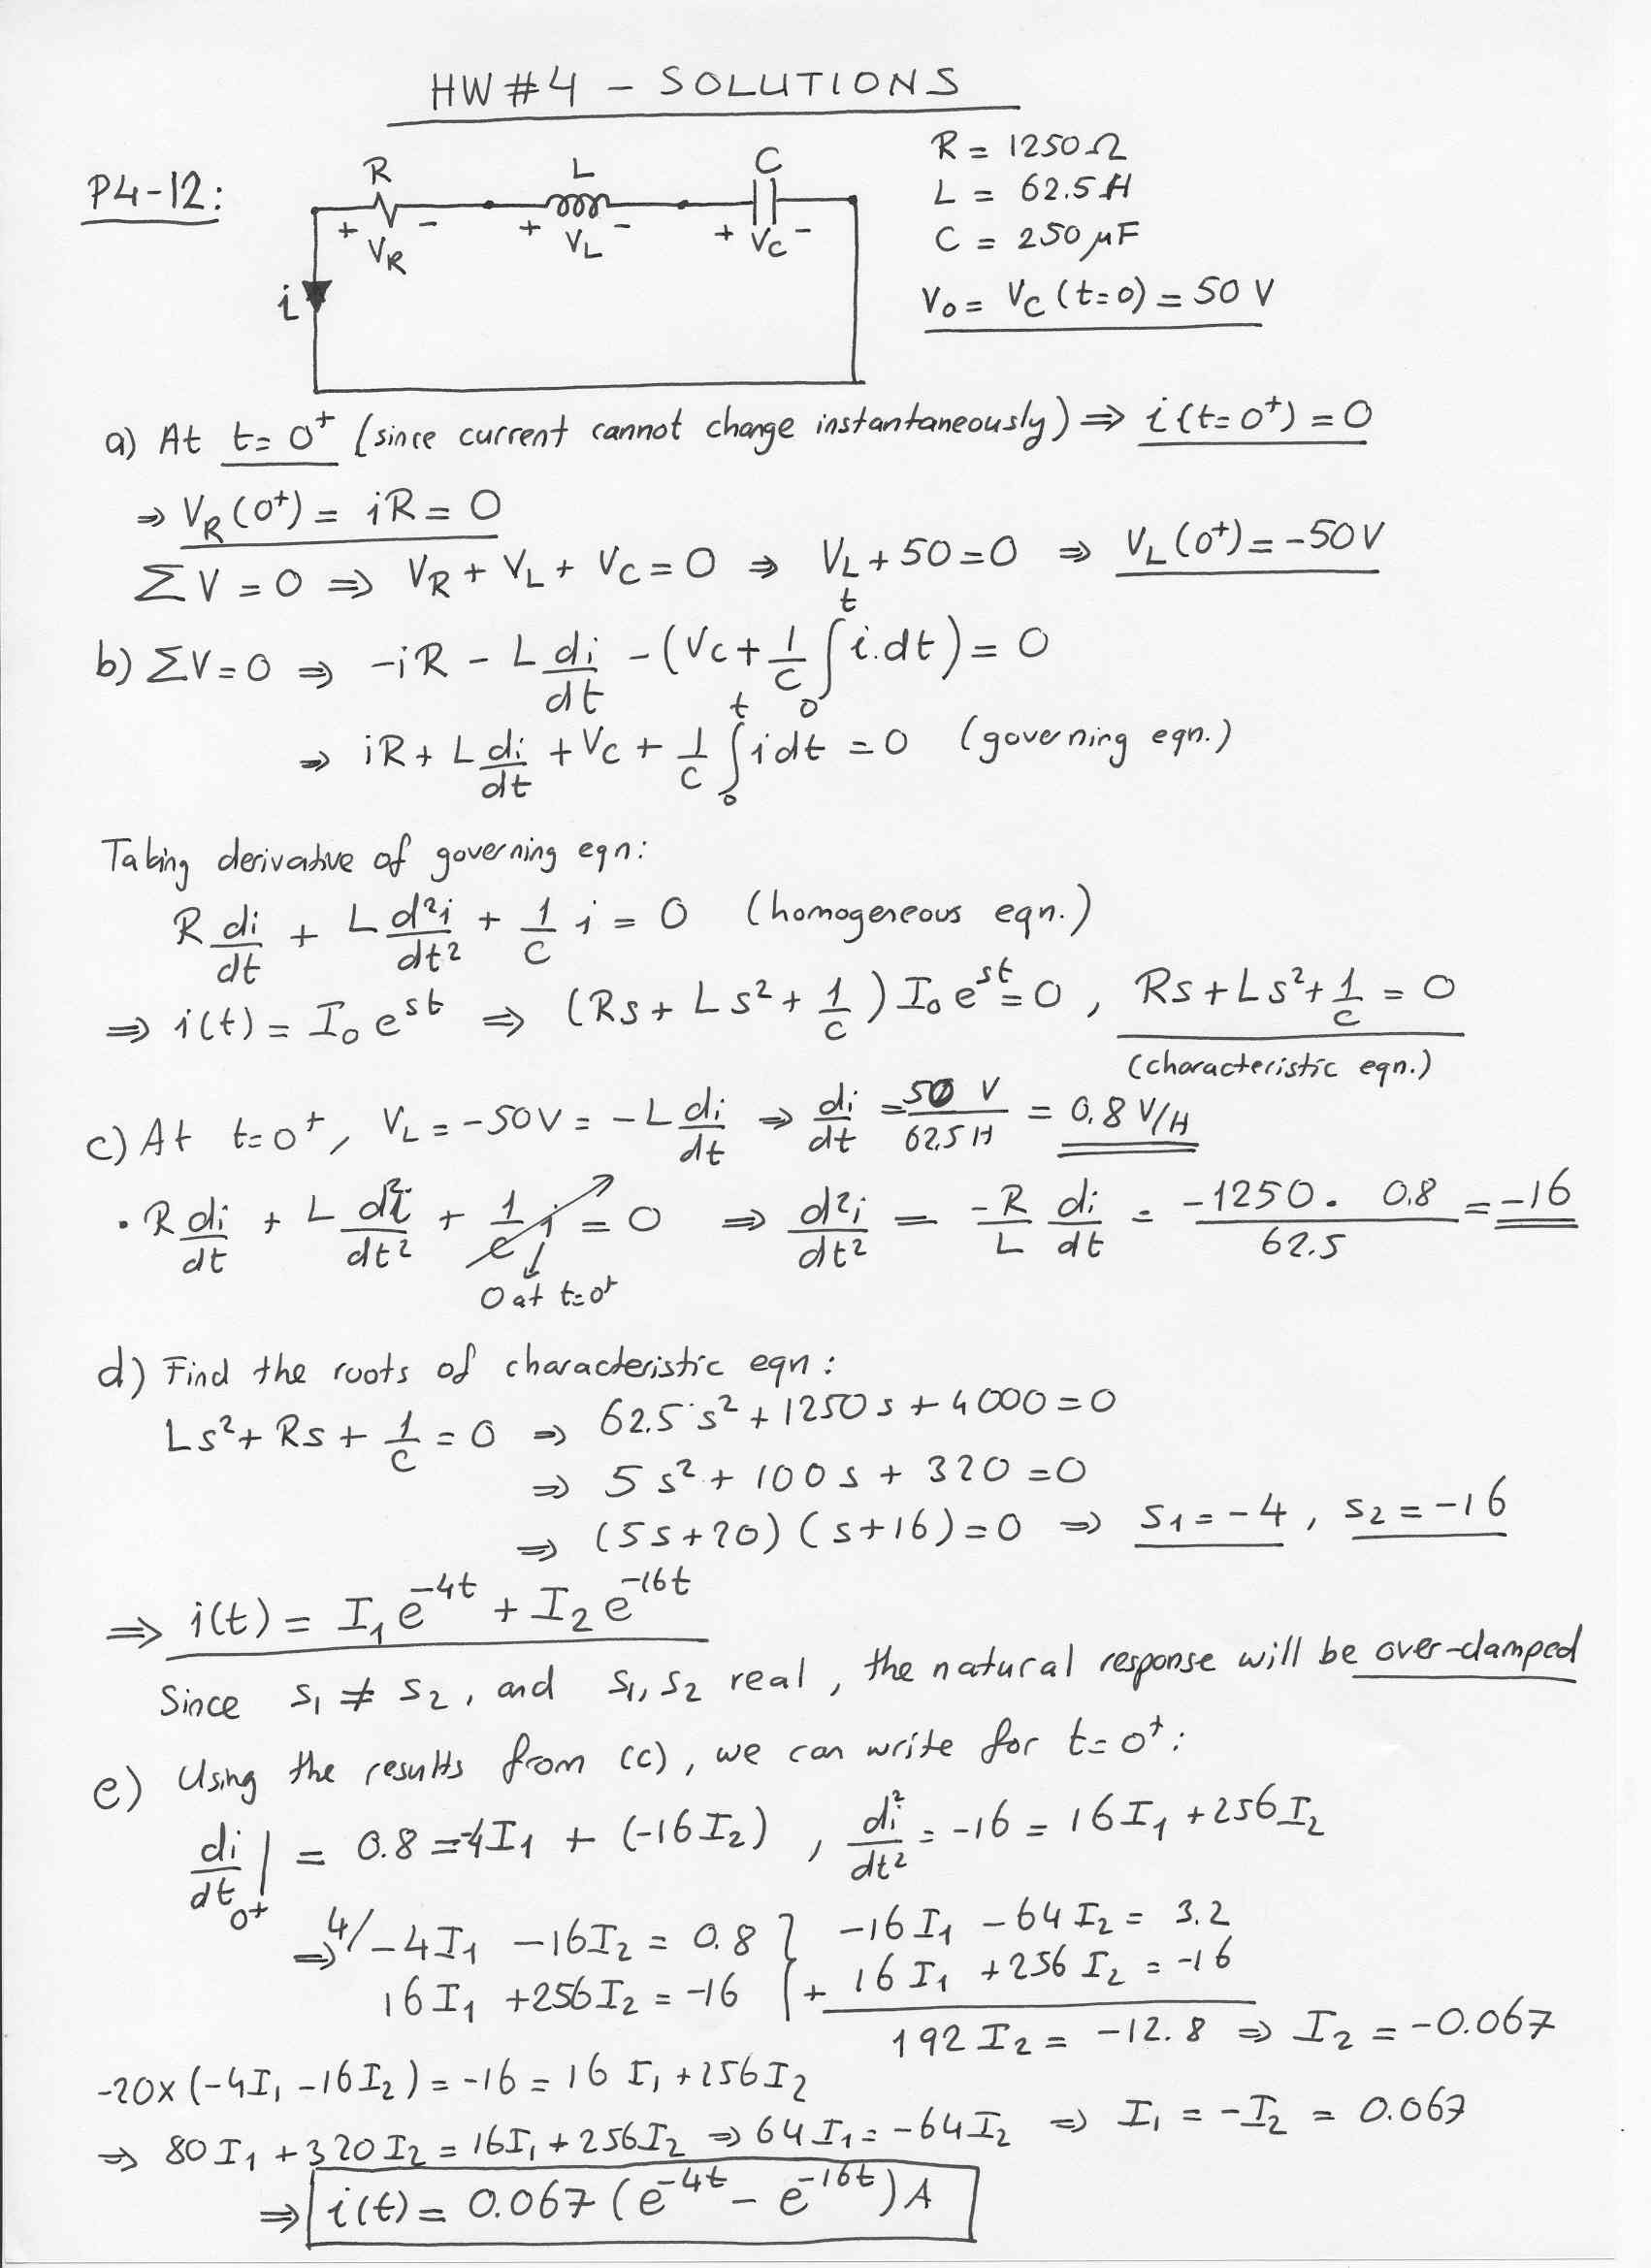 HW#4 - SOLUTIONS
P4-12:
R
L
C
+ VR -
+ VL -
+ VC -
i
R = 1250Ω
L = 62.5 H
C = 250 μF
V₀ = VC (t=0) = 50 V
a) At t= 0⁺ (since current cannot change instantaneously) ⇒ i(t=0⁺) = 0
⇒ VR(0⁺) = iR = 0
ΣV = 0 ⇒ VR + VL + VC = 0 ⇒ VL + 50 = 0 ⇒ VL(0⁺) = -50V
b) ΣV = 0 ⇒ -iR - L di/dt - (VC + 1/C ∫₀ᵗ i.dt) = 0
⇒ iR + L di/dt + VC + 1/C ∫₀ᵗ i dt = 0 (governing eqn.)
Taking derivative of governing eqn:
R di/dt + L d²i/dt² + 1/C i = 0 (homogeneous eqn.)
⇒ i(t) = I₀ eˢᵗ ⇒ (Rs + Ls² + 1/C) I₀ eˢᵗ = 0 , Rs + Ls² + 1/C = 0
(characteristic eqn.)
c) At t=0⁺, VL = -50V = -L di/dt ⇒ di/dt = 50 V/62.5 H = 0.8 V/H
· R di/dt + L d²i/dt² + 1/C i = 0 ⇒ d²i/dt² = -R/L di/dt = -1250 . 0.8/62.5 = -16
0 at t=0⁺
d) Find the roots of characteristic eqn:
Ls² + Rs + 1/C = 0 ⇒ 62.5 s² + 1250 s + 4000 = 0
⇒ 5 s² + 100 s + 320 = 0
⇒ (5s + 20) (s + 16) = 0 ⇒ s₁ = -4 , s₂ = -16
⇒ i(t) = I₁ e⁻⁴ᵗ + I₂ e⁻¹⁶ᵗ
Since s₁ ≠ s₂, and s₁, s₂ real, the natural response will be over-damped
e) Using the results from (c), we can write for t= 0⁺:
di/dt |₀₊ = 0.8 = -4I₁ + (-16I₂) , di²/dt² = -16 = 16I₁ + 256I₂
⇒ 4/ -4I₁ - 16I₂ = 0.8 } -16I₁ - 64I₂ = 3.2
16I₁ + 256I₂ = -16 + 16I₁ + 256I₂ = -16
192 I₂ = -12.8 ⇒ I₂ = -0.067
-20x (-4I₁ - 16I₂) = -16 = 16 I₁ + 256I₂
⇒ 80I₁ + 320I₂ = 16I₁ + 256I₂ ⇒ 64I₁ = -64I₂ ⇒ I₁ = -I₂ = 0.067
⇒ i(t) = 0.067 (e⁻⁴ᵗ - e⁻¹⁶ᵗ) A